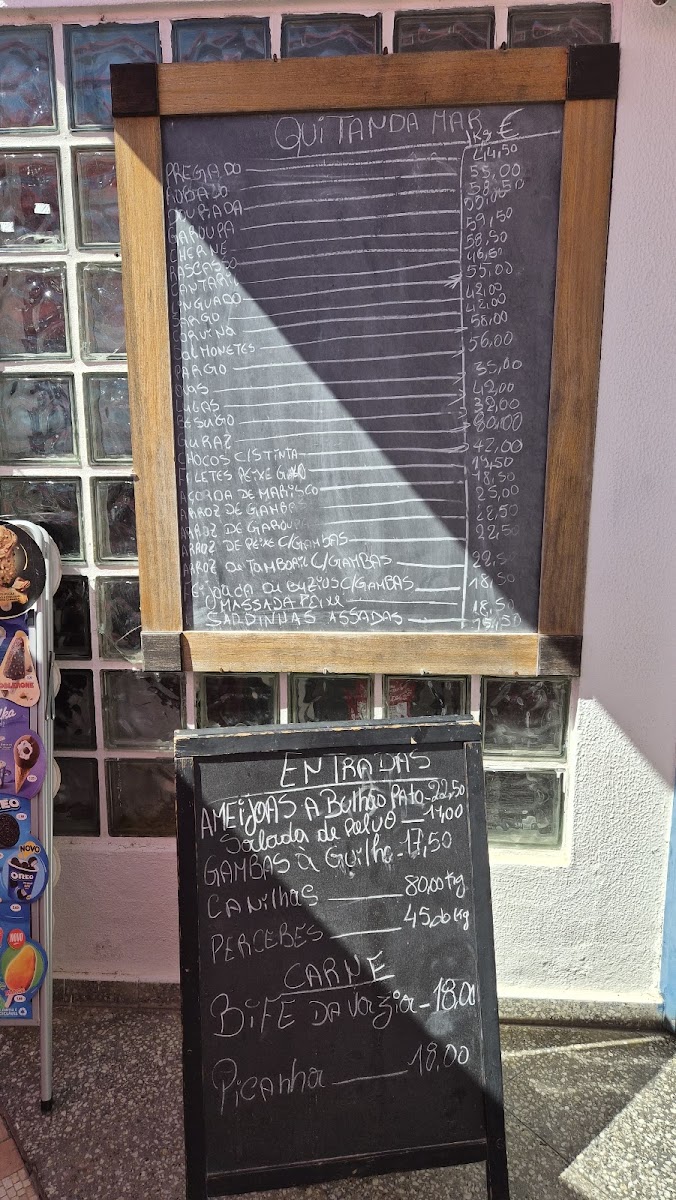 QUITANDA MAR Kg €
PREGADO 44,50
ROBALO 55,00
DOURADA 58,50
GAROUPA
CHERNE 59,50
RASCASSO 58,50
CANTARIL 46,50
LINGUADO 55,00
SARGO 42,00
CORVINA 42,00
SALMONETES 58,00
PARGO 56,00
LULAS 35,00
BESUGO
GURAZ
CHOCOS C/S TINTA
FILETES PEIXE GALO
AÇORDA DE MARISCO
ARROZ DE GAMBAS 25,00
ARROZ DE GAROUPA 22,50
ARROZ DE PEIXE C/GAMBAS 22,50
ARROZ DE TAMBORIL C/GAMBAS 22,5
FEIJOADA DE BUZIOS C/GAMBAS 18,50
MASSADA PEIXE 18,50
SARDINHAS ASSADAS 15,50
ENTRADAS
AMEIJOAS A Bulhão PATO-22,50
Salada de Polvo 14,00
GAMBAS à Guilho-17,50
CANilhas 80,00 Kg
PERCEBES 45,00 kg
CARNE
BIFE DA VAZia-18,00
Picanha 18,00
OREO
NOVO
OREO